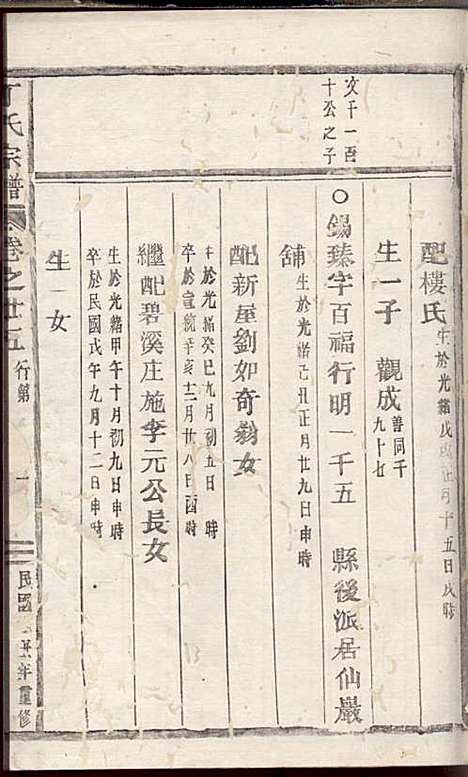 配樓氏 生於光緒戊戌正月十五日戌時
生一子 觀成 善同千九十七
文千一百
十公之子
○錫臻字百福行明一千五 縣後派居仙巖
舖 生於光緒己丑正月廿九日申時
配新屋劉如奇翁女
生於光緒癸巳九月初五日時
卒於宣統辛亥十二月廿八日酉時
繼配碧溪庄施李元公長女
生於光緒甲午十月初九日申時
卒於民國戊午九月十二日申時
生一女
丁氏宗譜 卷之廿五 行第 一 民國廿年重修